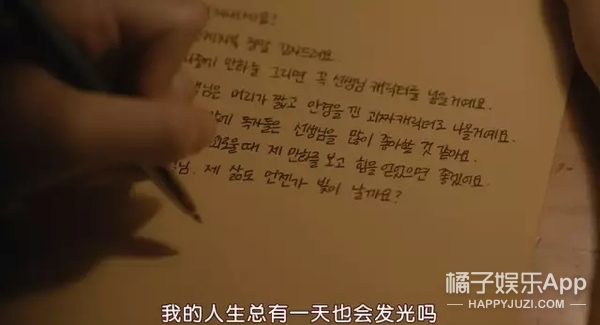 정말 감사드려요.
만화를 그리면 꼭 선생님 캐릭터를 넣을거예요.
머리가 짧고 안경을 낀 괴짜캐릭터로 나올거예요.
독자들은 선생님을 많이 좋아할 것 같아요.
외로울때 제 만화를 보고 힘을 얻었으면 좋겠어요.
제 삶도 언젠가 빛이 날까요?
我的人生总有一天也会发光吗
橘子娱乐App
HAPPYJUZI.COM